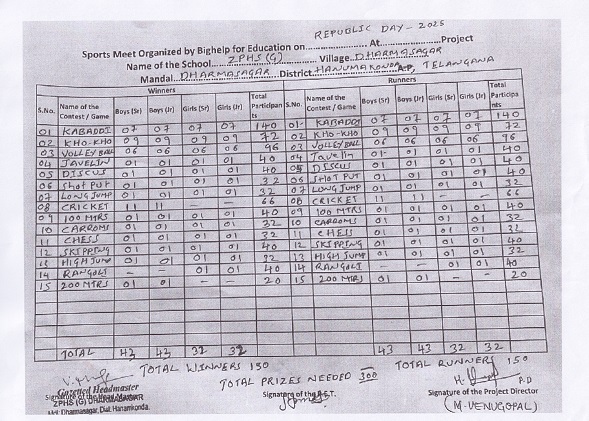 REPUBLIC DAY - 2025
Sports Meet Organized by Bighelp for Education on............ At............Project
Name of the School...ZPHS (G)... Village..DHARMASAGAR
Mandal..DHARMASAGAR District.HANUMAKONDA A.P, TELANGANA
Winners Runners
S.No. Name of the Contest / Game Boys (Sr) Boys (Jr) Girls (Sr) Girls (Jr) Total Participan ts S.No. Name of the Contest / Game Boys (Sr) Boys (Jr) Girls (Sr) Girls (Jr) Total Participa nts
01 KABADDI 07 07 07 07 140 01 KABADDI 07 07 07 07 140
02 KHO-KHO 09 09 09 09 72 02 KHO-KHO 09 09 09 09 72
03 VOLLEYBALL 06 06 06 06 96 03 VOLLEYBALL 06 06 06 06 96
04 JAVELIN 01 01 01 01 40 04 Javelin 01 01 01 01 40
05 DISCUS 01 01 01 01 40 05 DISCUS 01 01 01 01 40
06 SHOT PUT 01 01 01 01 32 06 SHOT PUT 01 01 01 01 40
07 LONG JUMP 01 01 01 01 32 07 LONG JUMP 01 01 01 01 32
08 CRICKET 11 11 - - 66 08 CRICKET 11 11 - - 66
09 100 MTRS 01 01 01 01 40 09 100 MTRS 01 01 01 01 40
10 CARROMS 01 01 01 01 32 10 CAROOMS 01 01 01 01 32
11 CHESS 01 01 01 01 32 11 CHESS 01 01 01 01 32
12 SKIPPING 01 01 01 01 40 12 SKIPPING 01 01 01 01 40
13 HIGH JUMP 01 01 01 01 32 13 HIGH JUMP 01 01 01 01 32
14 RANGOLI - - 01 01 40 14 RANGOLI - - 01 01 40
15 200 MTRS 01 01 - - 20 15 200 MTRS 01 01 - - 20
TOTAL 43 43 32 32 43 43 32 32
TOTAL WINNERS 150 TOTAL RUNNERS 150
TOTAL PRIZES NEEDED 300
Gazetted Headmaster P.D
Signature of the Head Master Signature of the P.E.T. Signature of the Project Director
ZPHS (G) DHARMASAGAR
Mdl: Dharmasagar, Dist: Hanamkonda. (M. VENUGOPAL)